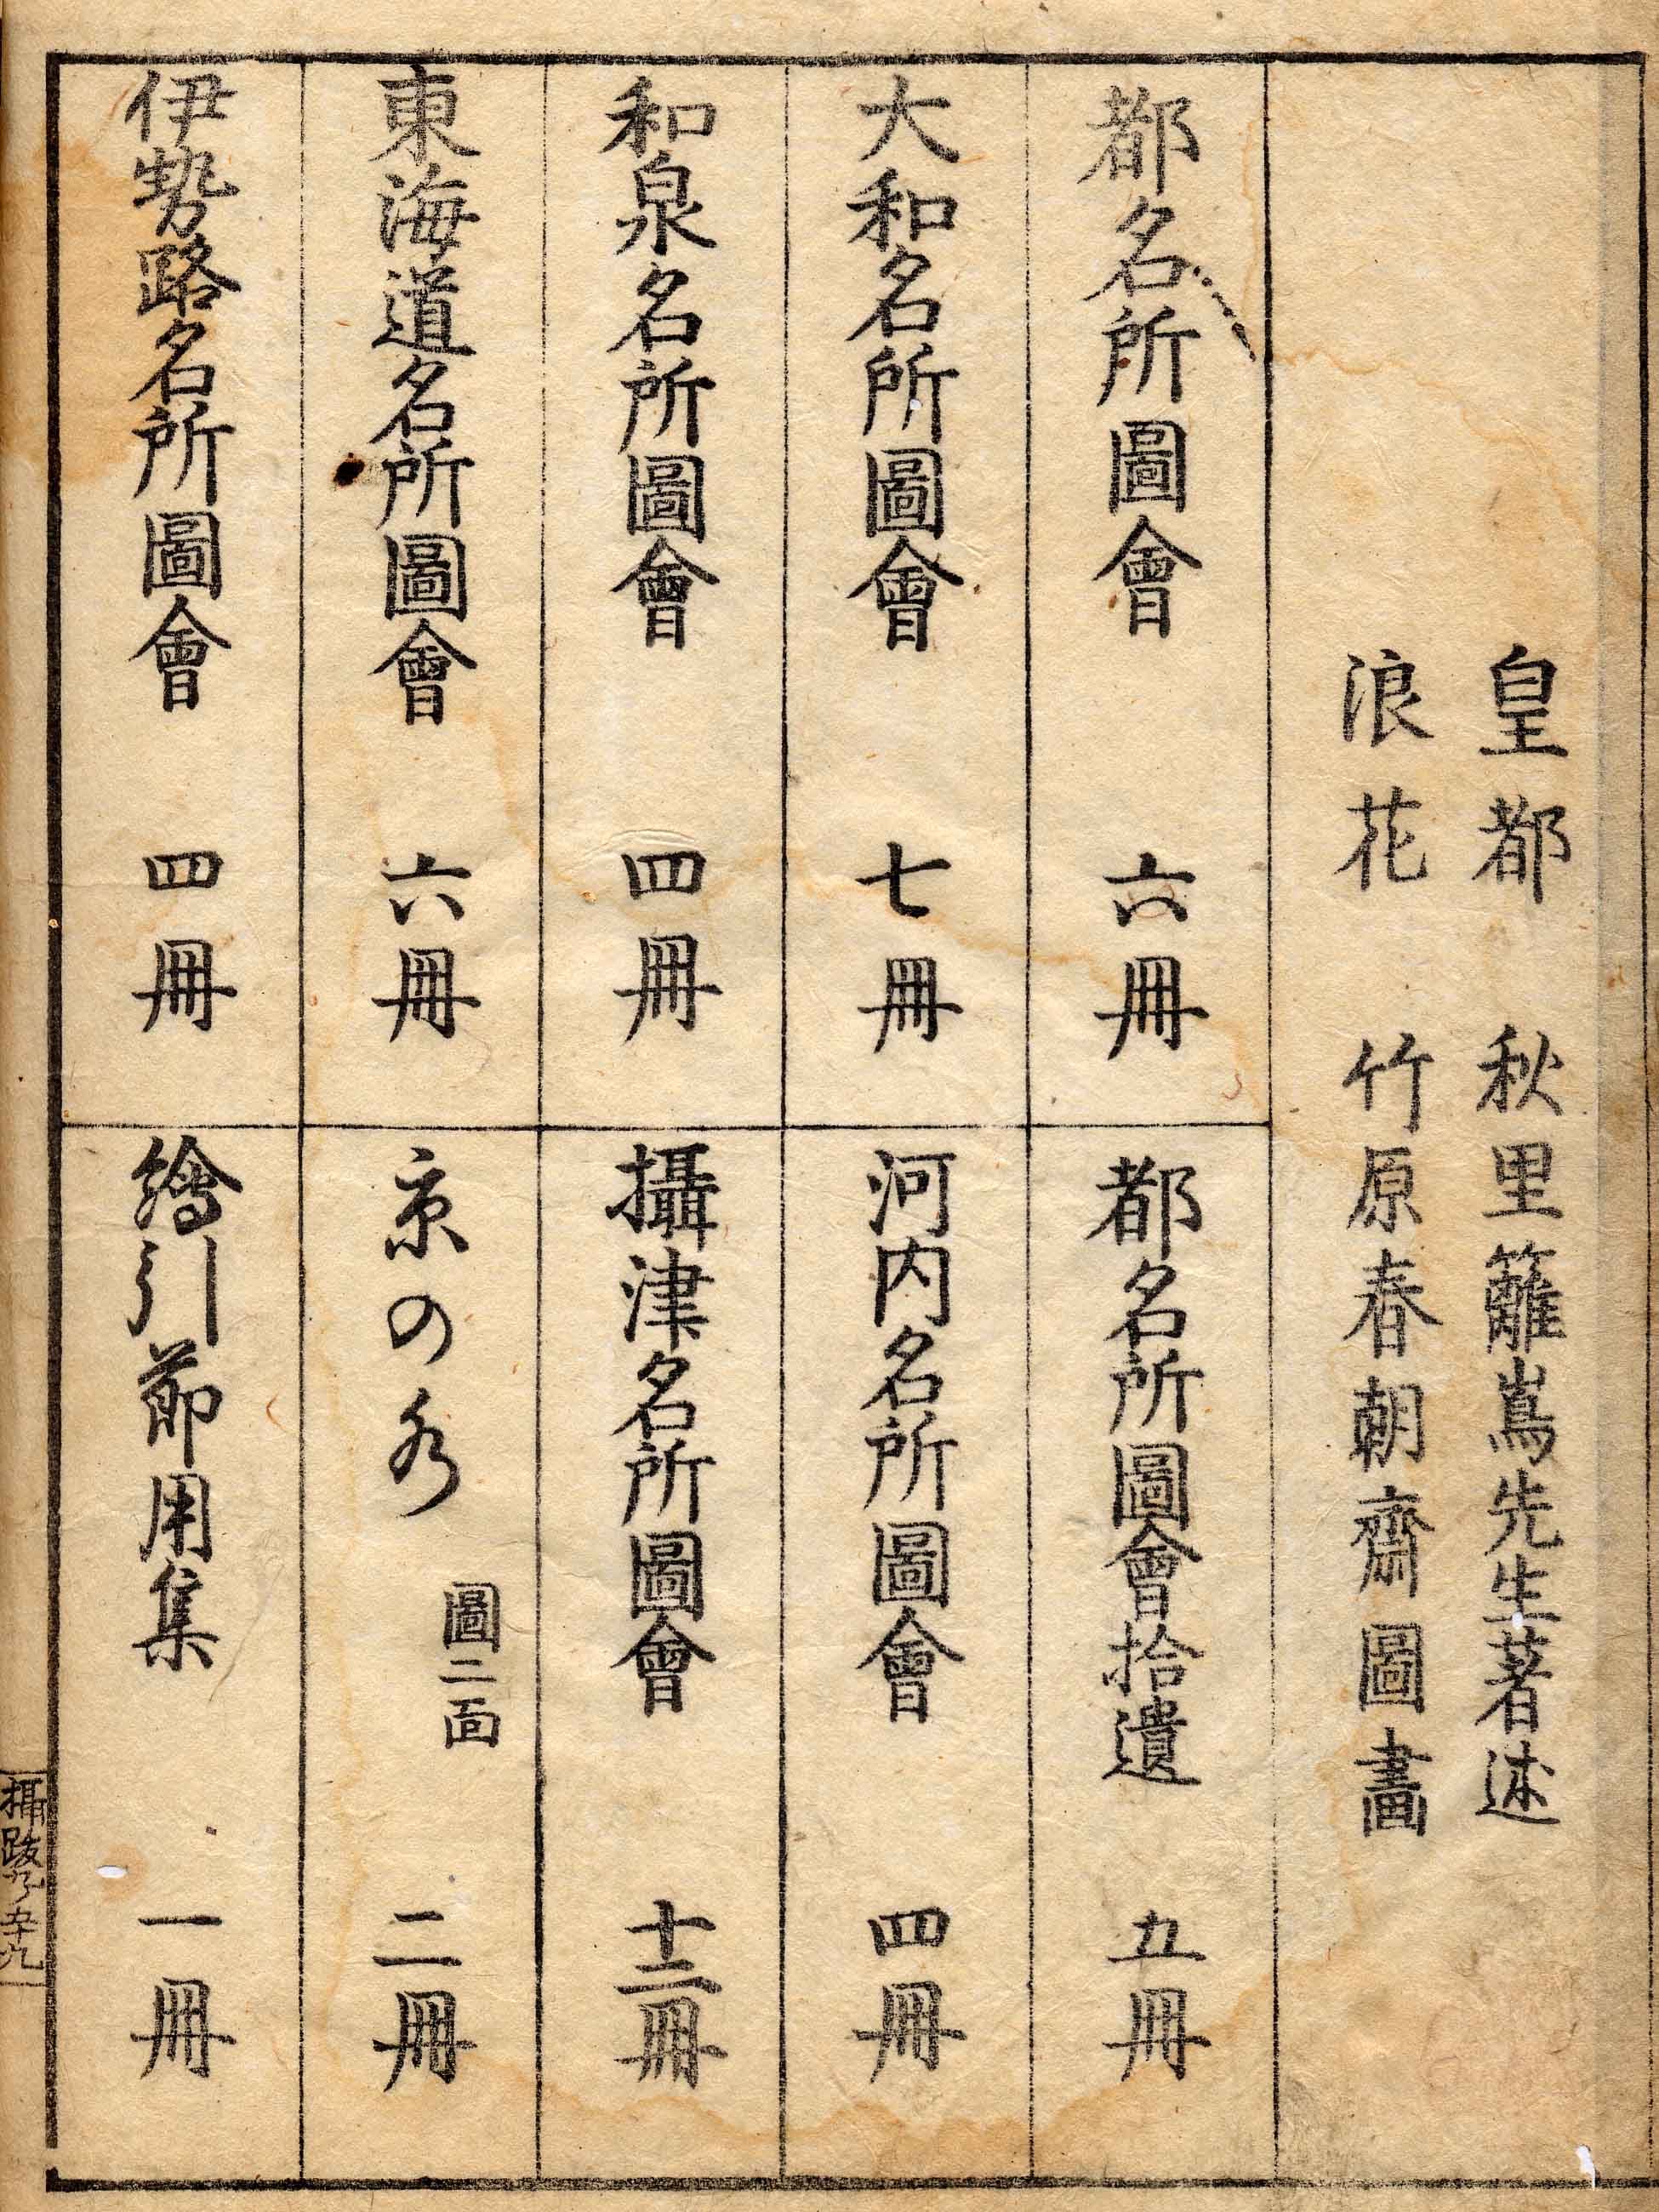 皇都　秋里籬嶌先生著述
浪花　竹原春朝齋圖畫
都名所圖會　六冊
都名所圖會拾遺　五冊
大和名所圖會　七冊
河内名所圖會　四冊
和泉名所圖會　四冊
攝津名所圖會　十二冊
東海道名所圖會　六冊
京の水　圖二面　二冊
伊勢路名所圖會　四冊
繪引節用集　一冊
攝跋